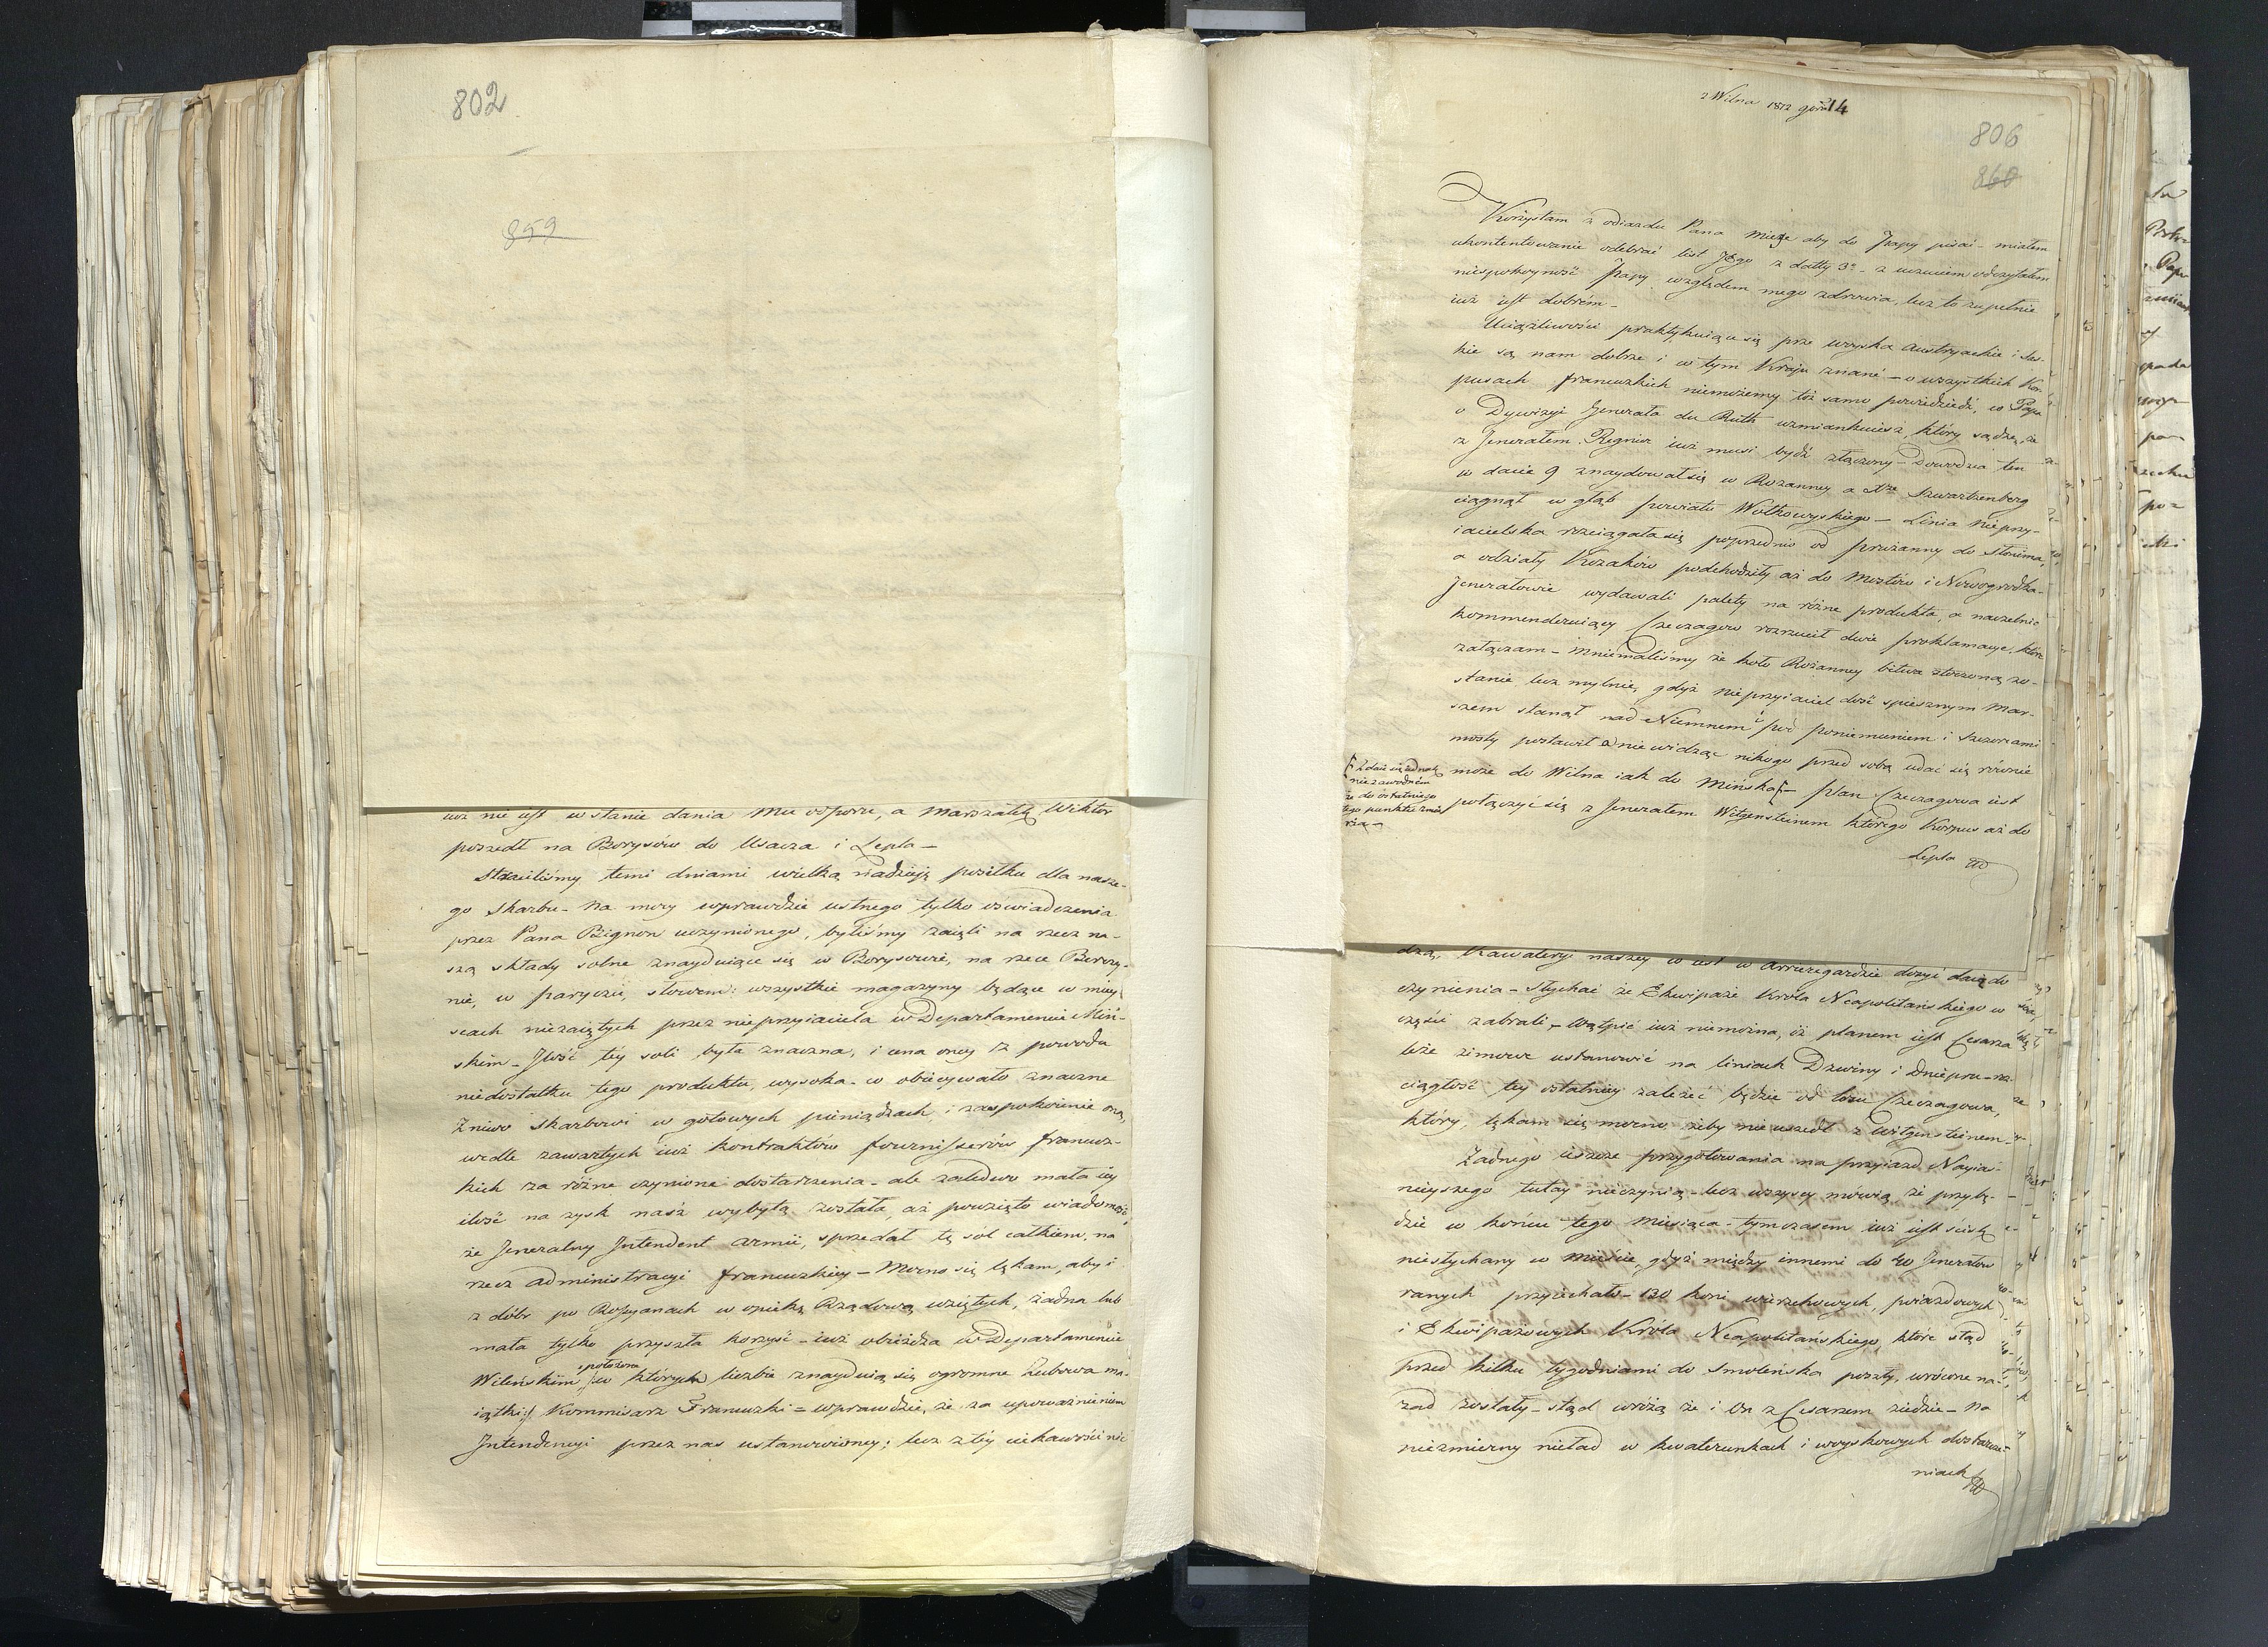 802
859
iuż nie iest w stanie dania mu odporu, a Marszałek Wiktor
poszedł na Borysów do Usacza i Lepla —
Straciliśmy temi dniami wielką nadzieję posiłku dla nasze-
go skarbu - na mocy wprawdzie ustnego tylko oświadczenia
przez Pana Bignon uczynionego, byliśmy zaięli na rzecz na-
szą składy solne znayduiące się w Borysowie, na rzece Berezy-
nie, w Paryczu, słowem: wszystkie magazyny będące w miey-
scach niezaiętych przez nieprzyiaciela w Departamencie Miń-
skim - Ilość tey soli była znaczna, i cena oney z powodu
niedostatku tego produktu, wysoka - co obiecywało znaczne
żniwo skarbowi w gotowych pieniądzach, i zaspokoienie oną,
wedle zawartych iuż kontraktów fournisserów francuz-
kich za różne czynione dostarczenia - ale zaledwo mała iey
ilość na zysk nasz wybytą została, aż powzięto wiadomość,
że Jeneralny Intendent armii, sprzedał tę sól całkiem, na
rzecz administracyi francuzkiey — Mocno się lękam, aby i
z dóbr po Rossyanach w opiekę Rządową wziętych, żadna lub
mała tylko przyszła korzyść - iuż obieżdża w Departamencie
położone
Wileńskim /:w których liczbie znayduią się ogromne Zubowa ma-
iątki:/ Kommisarz Francuzki = wprawdzie, że za upoważnieniem
Intendencyi przez nas ustanowioney; lecz z tey ciekawości nic
z Wilna 1812 9bra 14
806
860
Korzystam z odiazdu Pana Mieże aby do Papy pisać - miałem
ukontentowanie odebrać list Jego z datty 3° - z uczuciem odczytałem
niespokoyność Papy względem mego zdrowia, lecz to zupełnie
iuż iest dobrém -
Uciążliwości praktykuiące się prze woyska Austryackie i Sas-
kie są nam dobrze i w tym Kraju znane — o wszystkich Kor-
pusach francuzkich niemożemy toż samo powiedzieć, co Papa
o Dywizyi Jenerała du Ruth wzmiankuiesz, który sądzę, że
z Jenerałem Regnier iuż musi bydź złączony — Dowodzca ten
w dacie 9 znaydował się w Rożanney a Xże Szwartzenberg
ciągnął w głąb powiatu Wołkowyskiego — Linia nieprzy-
iacielska rozciągała się poprzednio od Prużanny do Słonima,
a odziały Kozaków podchodziły aż do Mostów i Nowogrodka -
Jenerałowie wydawali palety na różne produkta, a naczelnie
kommenderuiący Czeczagow rozrzucił dwie proklamacye, które
załączam - mniemaliśmy że koło Rożanney bitwa stoczoną zo-
stanie lecz mylnie, gdyż nieprzyiaciel dość spiesznym mar-
szem stanął nad Niemnem i pod Poniemuniem i Szczorsami
mosty postawił a niewidząc nikogo przed sobą udać się równie
może do Wilna iak do Mińska — plan Czeczagowa iest
połączyć się z Jenerałem Witgensteinem którego Korpus aż do
Lepla
Zdaie się iednak
niezawodném
że do ostatniego
tego punktu zmie
rza —
dzą. Kawaleryi naszey co iest w Arrieregardzie dosyć daią do
czynienia - Słychać że Ekwipaże Króla Neapolitańskiego w
części zabrali - Wątpić iuż niemożna, iż planem iest Cesarza
leże zimowe ustanowić na liniach Dzwiny i Dniepru - na
ciągłość tey ostatniey zależeć będzie od losu Czeczagowa,
który, lękam się mocno żeby nie uszedł z Witgensteinem -
Żadnego ieszcze przygotowania na przyiazd Nayias-
nieyszego tutay nieczynią - lecz wszyscy mówią że przybę-
dzie w końcu tego miesiąca - tymczasem iuż iest ścisk
niesłychany w mieście, gdyż między innemi do 20 Jenerałów
ranych przyiechało - 130 koni wierzchowych, poiazdowych
i Ekwipażowych Króla Neapolitańskiego, które stąd
przed kilku tygodniami do Smoleńska poszły, wrócone na-
zad zostały - stąd wróżą że i On z Cesarzem ziedzie - na
niezmierny nieład w kwaterunkach i woyskowych dostarcze-
niach